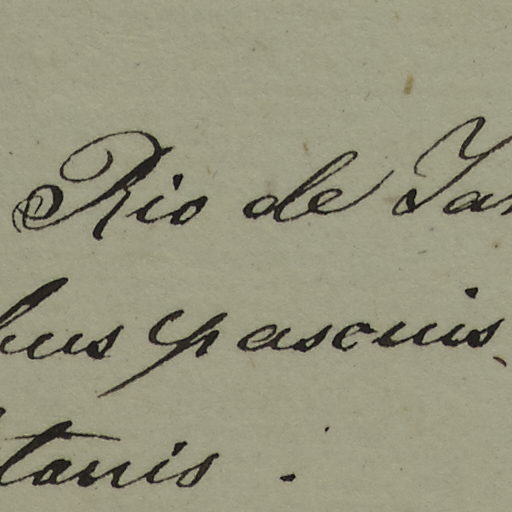 Rio de Jan
bus pasonis
tanis .